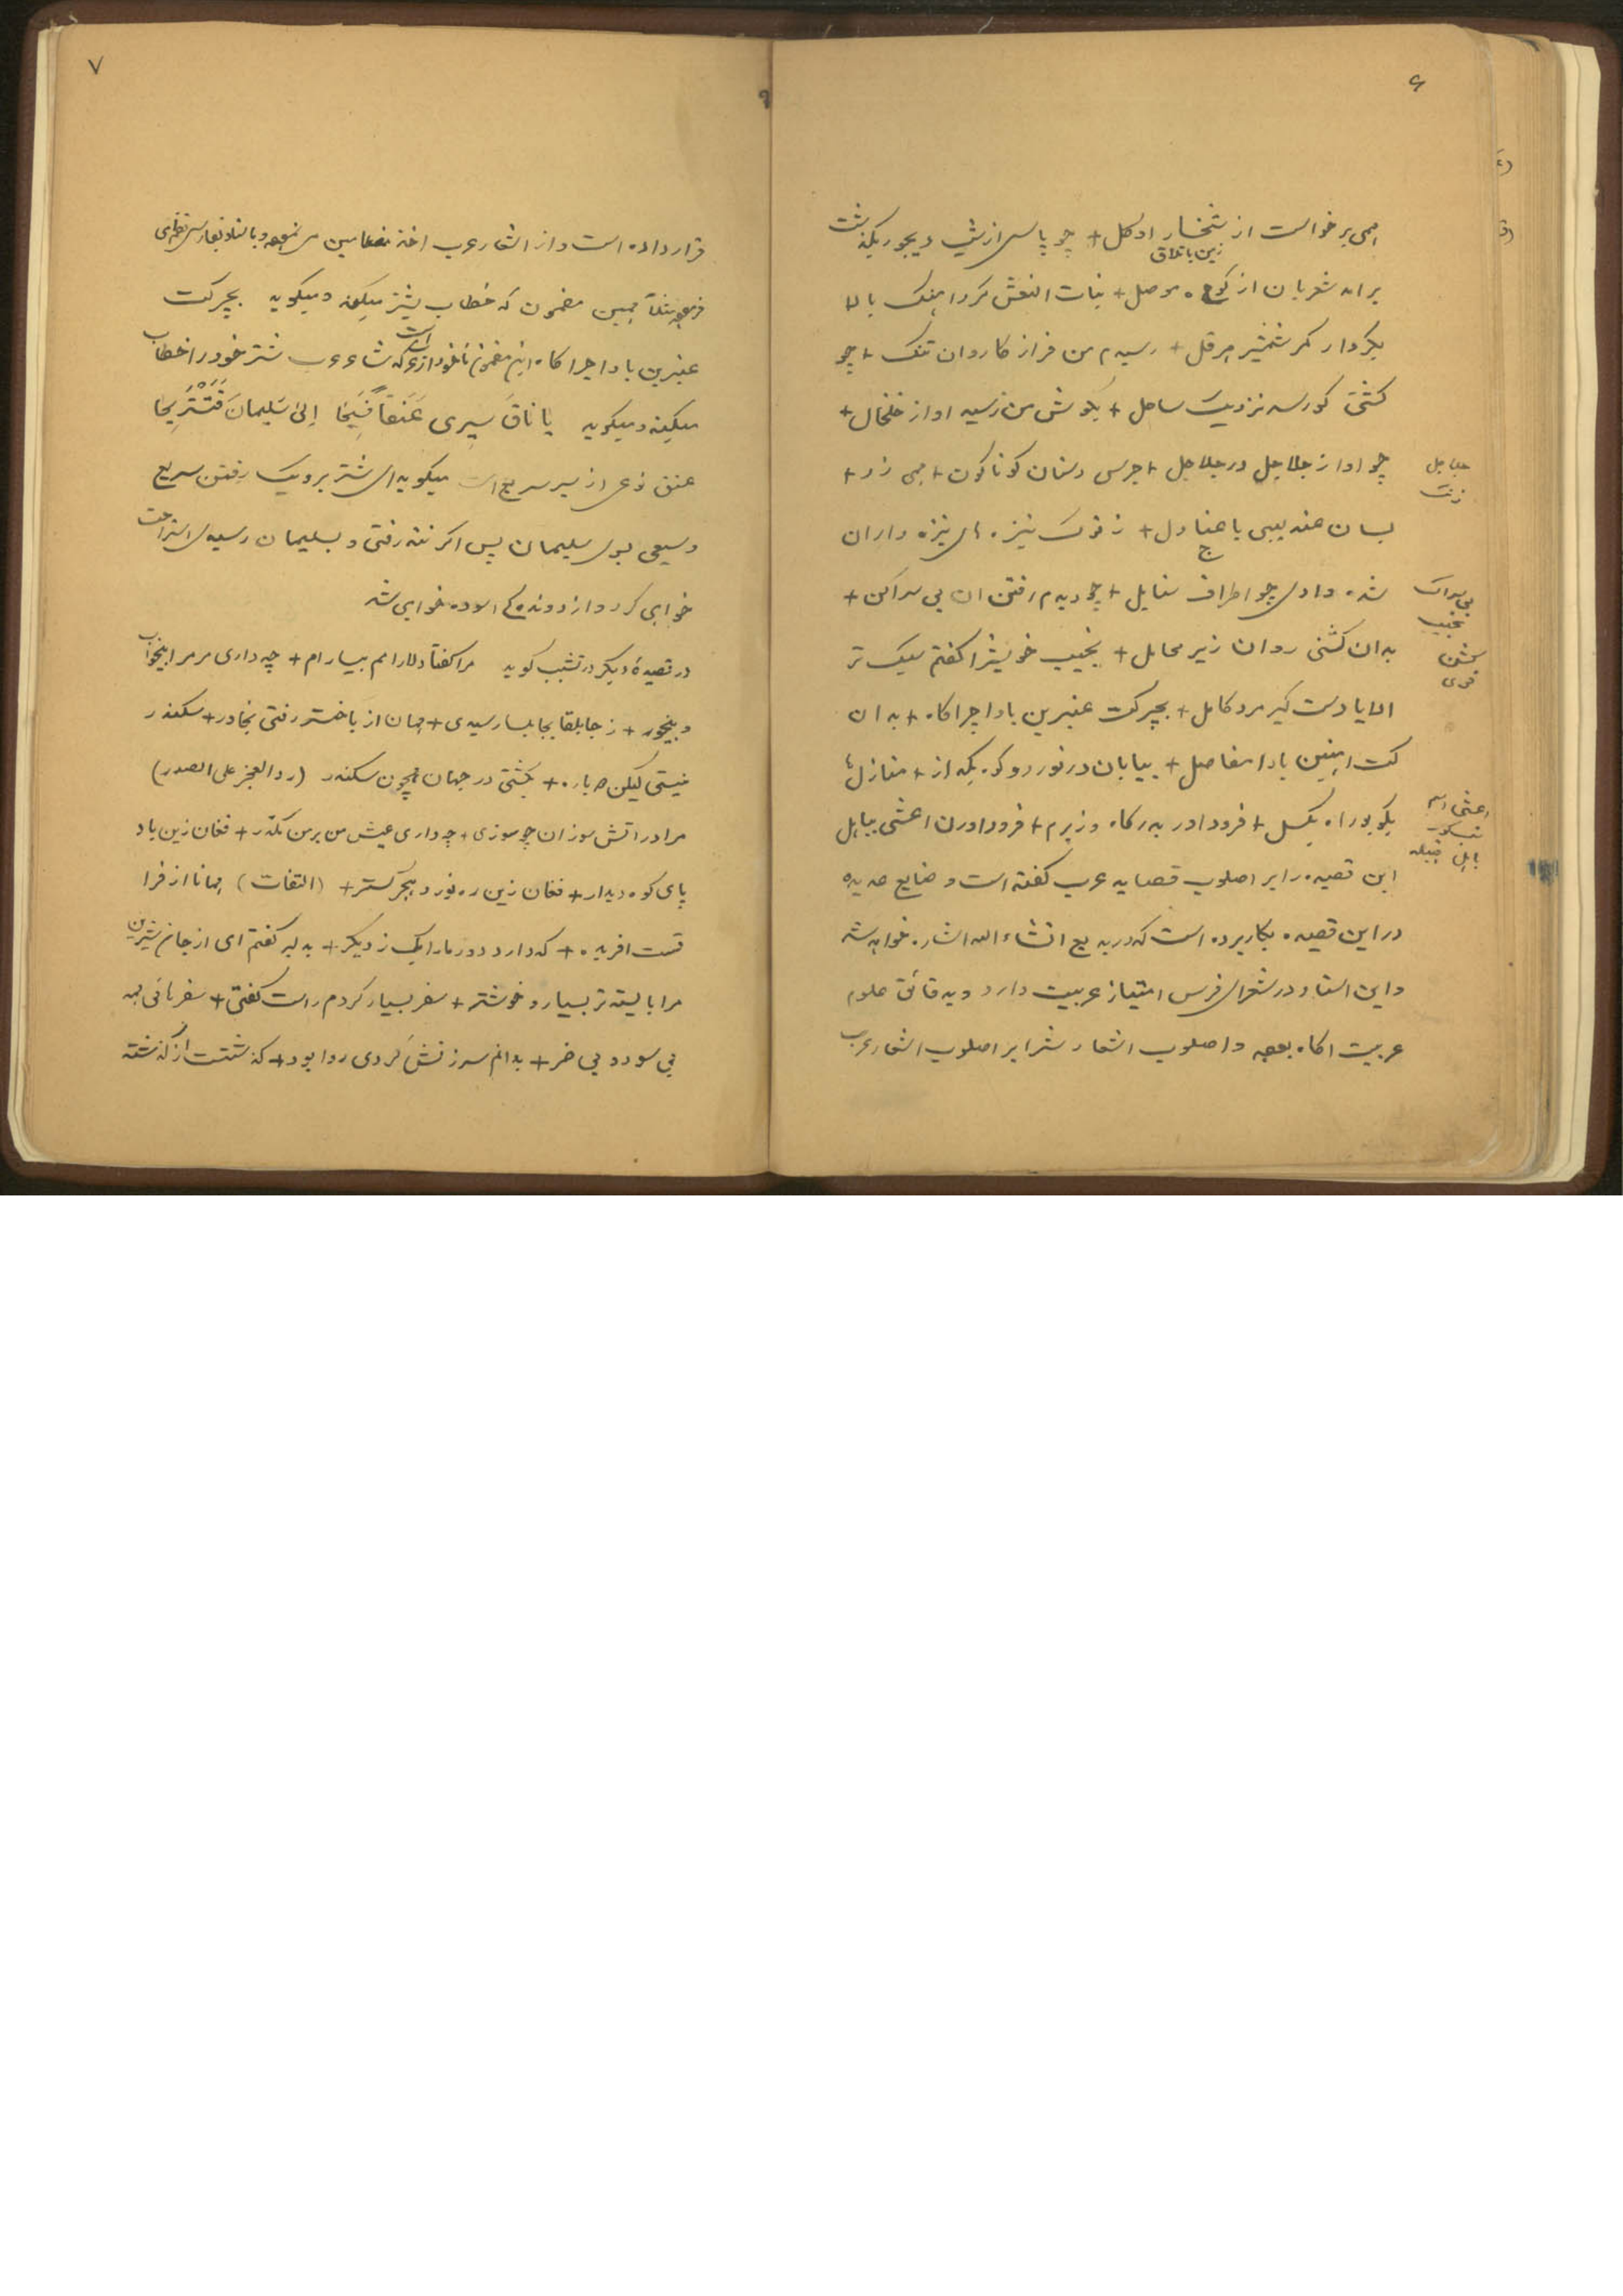 ۶
همی برخواست از شخسار او گل + چو پاسی از شب دیجور بگذشت
زمین باتلاق
برامد شعریان از کوه موصل + بنات النعش کرد اهنگ بالا
بکردار کمر شمشیر هرقل + رسیدم من فراز کاروان تنگ + چو
کشتی کو رسد نزدیک ساحل + بگوش من رسید اواز خلخال +
چو اواز جلاجل در جلاجل + جرس دستان گوناگون + همی زد +
جلاجل
زنگ
بسان عندلیبی با عنادل + ز نوک نیزه های نیزه داران
شده وادی چو اطراف سنابل + چو دیدم رفتن ان بی سراکن +
نجیب
بدان کشنی روان زیر محامل + نجیب خویشرا گفتم سبک تر
کشن
قوی
الا یا دستگیر مرد کامل + بچر کت عنبرین بادا چراگاه + بدان
کت اهنین بادا مفاصل + بیابان درنورد و کوه بگذار + منازلها
بکوب و راه بگسل + فرود اور بدرگاه وزیرم + فرود اوردن اعشی بباهل
اعشی اسم
باهل قبیله
این قصیده را بر اصلوب قصاید عرب گفته است و ضایع عدیده
در این قصیده بکار برده است که در بدیع انشاء الله اشاره خواهد شد
و این استاد در شعرای فرس امتیاز عربیت دارد و بدقائق علوم
عربیت اگاه بوده و اصلوب اشعارش را بر اصلوب اشعار عرب
۷
قرار داده است و از اشعار عرب اخذ مضامین می نموده و
فرموده مثلاً همین مضمون که خطاب بشتر میکند و میگوید بچر کت
عنبرین بادا چراگاه این مضمون ماخوذ از است که شاعر عرب شتر خود را خطاب
میکند و میگوید یا ناقَ سیری عَنَقاً فَسیحَا إلی سُلیمانَ فَنَسْتَریحَا
عنق نوعی از سیر سریع است میگوید ای شتر برو یک رفتن سریع
وسیعی بسوی سلیمان پس اگر تند رفتی و بسلیمان رسیدی استراحت
خواهی کرد و از دوندگی اسوده خواهی شد
در قصیدهٔ دیگر در تشبب گوید مرا گفتا دلارامم بیارام + چه داری مر مرا بیخواب
و بیخور + ز جابلقا بجابلسا رسیدی + همان از باختر رفتی بخاور + سکندر
نیستی لیکن صد باره + بگشتی در جهان همچون سکندر (رد العجز علی الصدر)
مرا در اتش سوزان چو سوزی + چه داری عیش من بر من مکدر + فغان زین باد
پای کوه دیدار + فغان زین ره نورد هجر گستر + (التفات) همانا از فرا
قست افریده + که دارد دور مارا یک ز دیگر + بدلبر گفتم ای از جان شیرین
مرا بایسته تر بسیار و خوشتر + سفر بسیار کردم راست گفتی + سفرهائی همه
بی سود و بی ضر + بدانم سرزنش کردی روا بود + گذشتست از گذشته